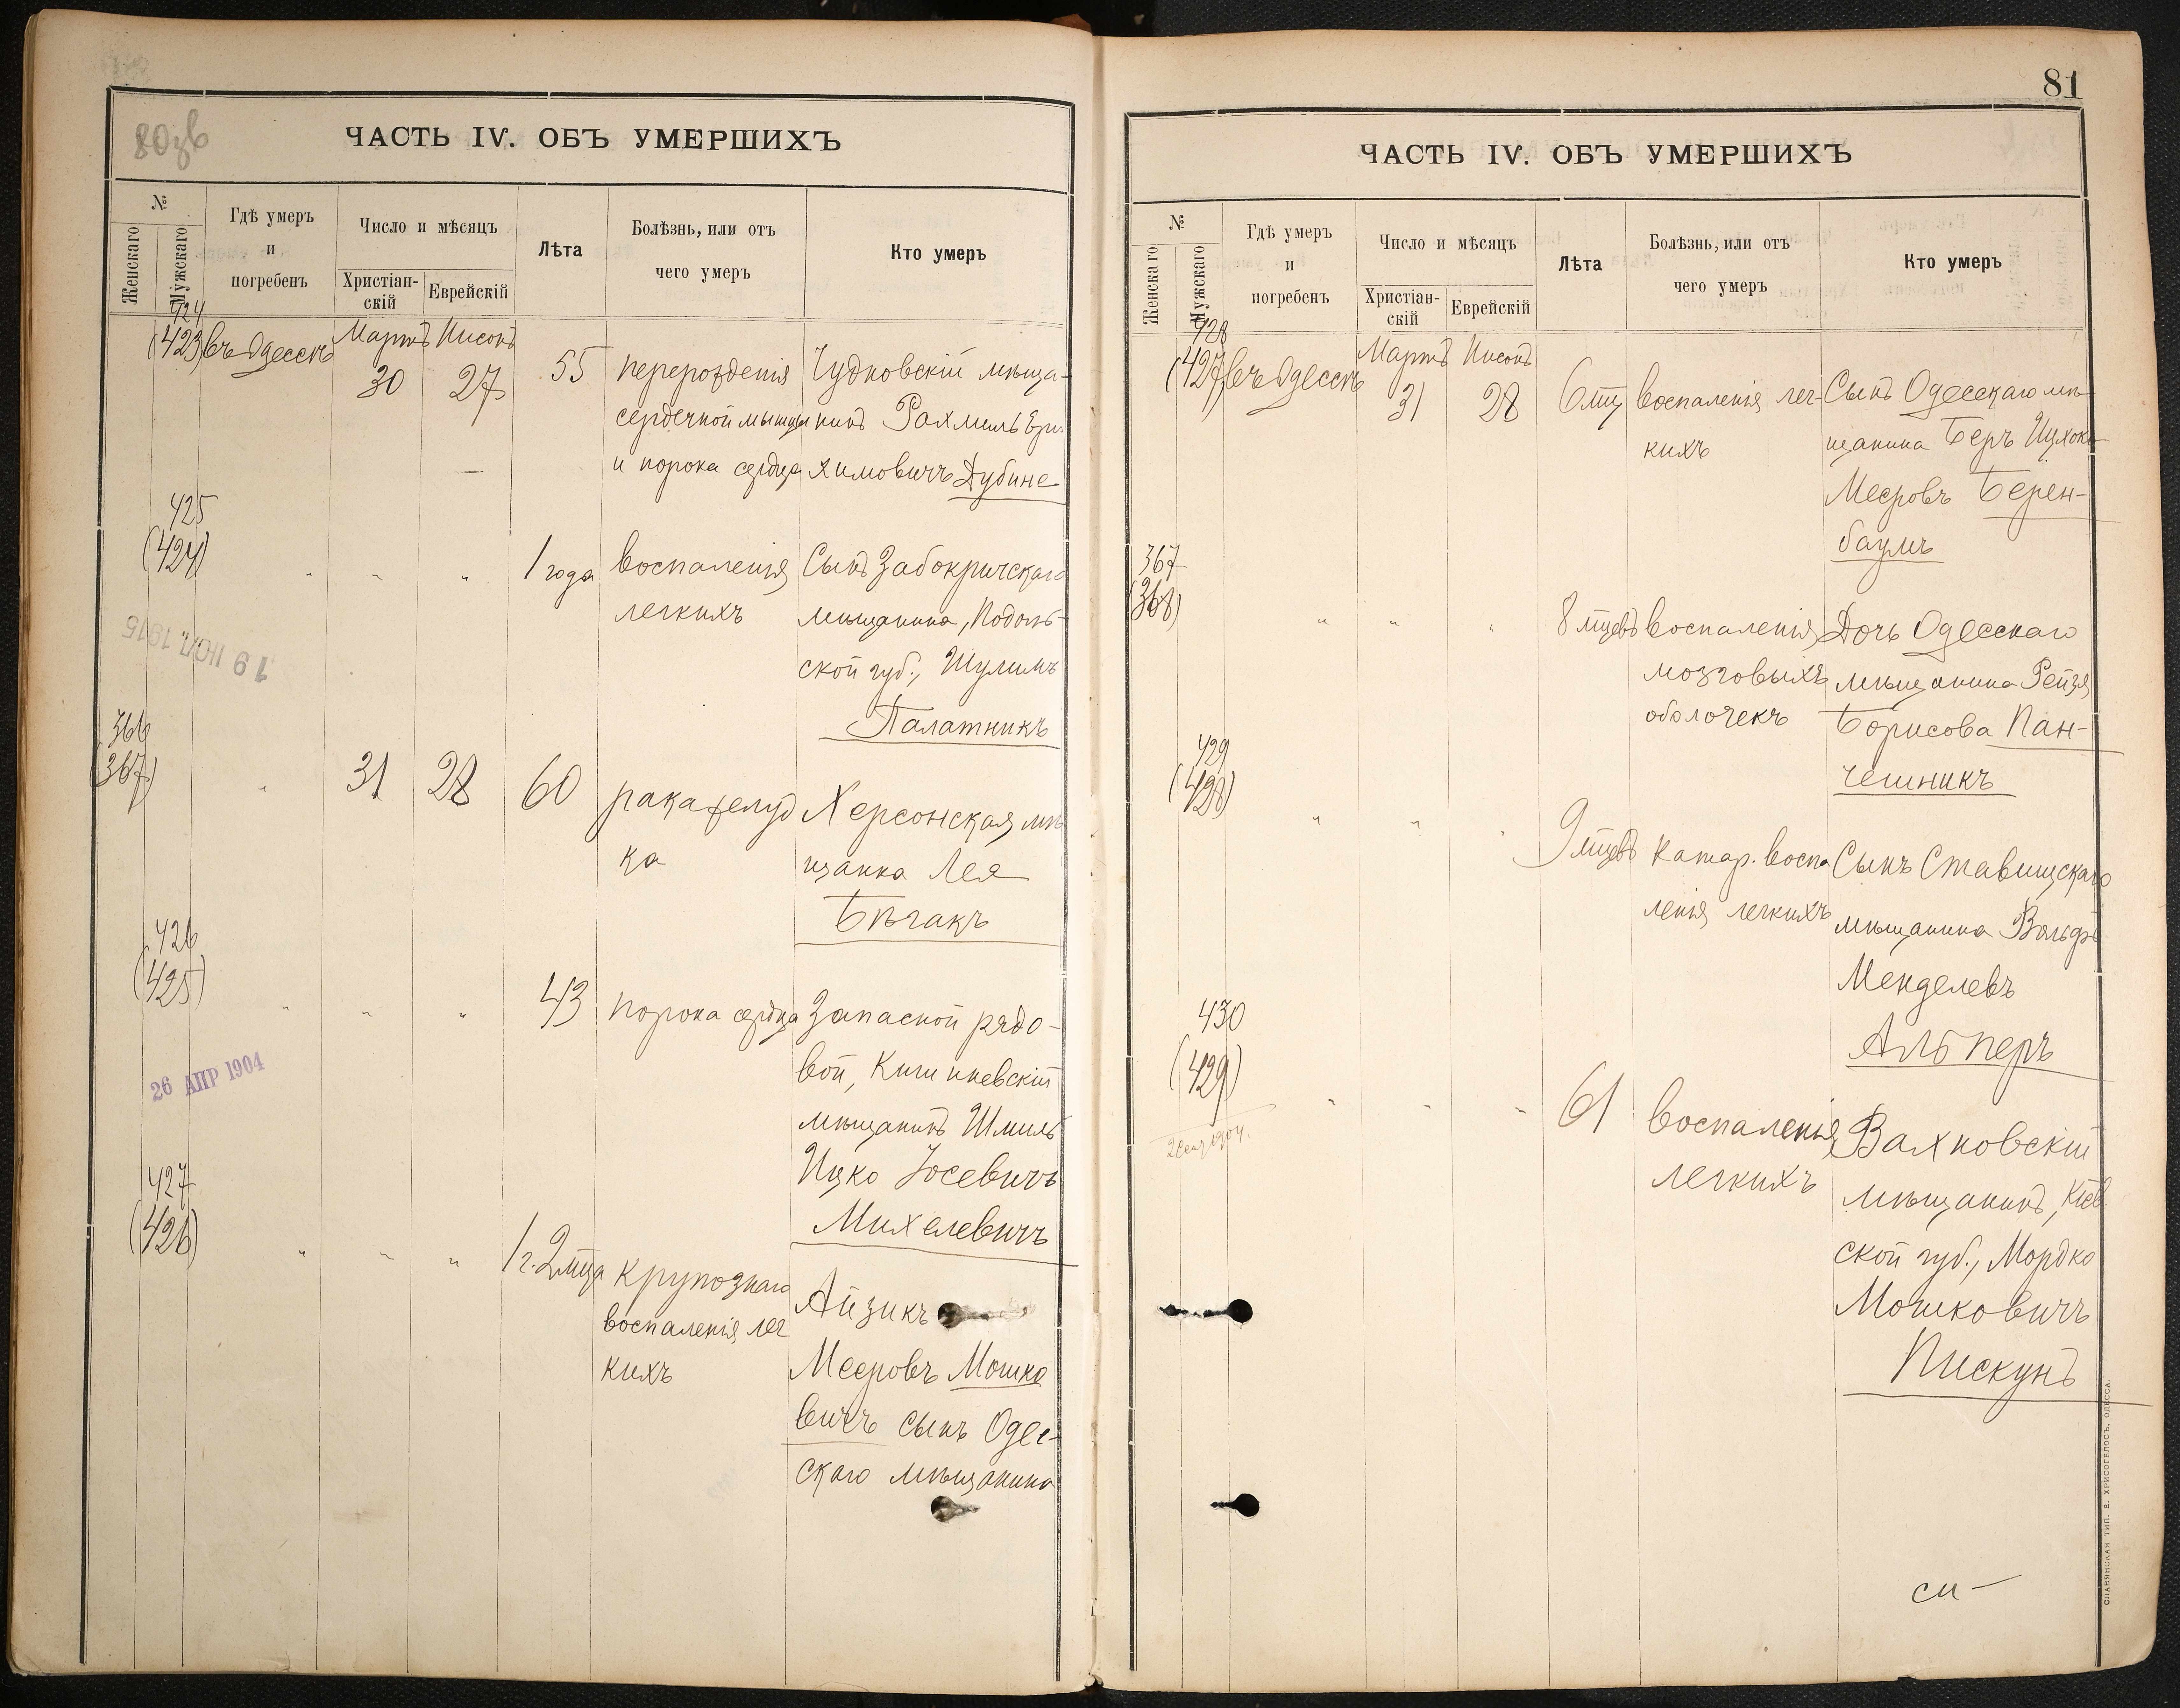 80зв
ЧАСТЬ IV. ОБЪ УМЕРШИХЪ
№
Женскаго
Мужскаго
Гдѣ умеръ
и
погребенъ
Число и мѣсяцъ
Христіан-
скій
Еврейскій
Лѣта
Болѣзнь, или отъ
чего умеръ
Кто умеръ
424
(423)
въ Одессѣ
Мартъ Нисонъ
30 27
55
перерожденія
сердечной мышцы
и порока сердца
Чудновскій мѣща-
нинъ Рахмиль Ер
химовичъ Дубине
425
(424)
" " "
1 года
воспаленія
легкихъ
Сынъ Забокричскаго
мѣщанина, Подоль-
ской губ., Шулимъ
Палатникъ
19 НОЯ. 1915
366
(367)
"
31 28
60
рака желуд
ка
Херсонская мѣ
щанка Лея
Бѣгакъ
426
(425)
" " "
43
порока сердца
Запасной рядо-
вой, Кишиневскій
мѣщанинъ Шмиль
Ицко Іосевичъ
Михелевичъ
26 АПР 1904
427
(426)
" " "
1 г. 2 мца
крупознаго
воспаленія лег
кихъ
Айзикъ
Мееровъ Мошко
вичъ сынъ Одес-
скаго мѣщанина
81
ЧАСТЬ IV. ОБЪ УМЕРШИХЪ
№
Женскаго
Мужскаго
Гдѣ умеръ
и
погребенъ
Число и мѣсяцъ
Христіан-
скій
Еврейскій
Лѣта
Болѣзнь, или отъ
чего умеръ
Кто умеръ
428
(427)
въ Одессѣ
Мартъ Нисонъ
31 28
6 мц
воспаленія лег-
кихъ
Сынъ Одесскаго мѣ-
щанина Беръ Ицхокъ
Мееровъ Берен-
баумъ
367
(368)
" " "
8 мцевъ
воспаленія
мозговыхъ
оболочекъ
Дочь Одесскаго
мѣщанина Рейзя
Борисова Пан-
чешникъ
429
(428)
" " "
9 мцевъ
Катар. воспа
ленія легкихъ
Сынъ Ставищскаго
мѣщанина Вольфъ
Менделевъ
Альперъ
430
(429)
" " "
61
воспаленія
легкихъ
Вахновскій
мѣщанинъ, Кіев
ской губ., Мордко
Мошковичъ
Пискунъ
СЛАВЯНСКАЯ ТИП. Е. ХРИСОГЕЛОСЪ, ОДЕССА.